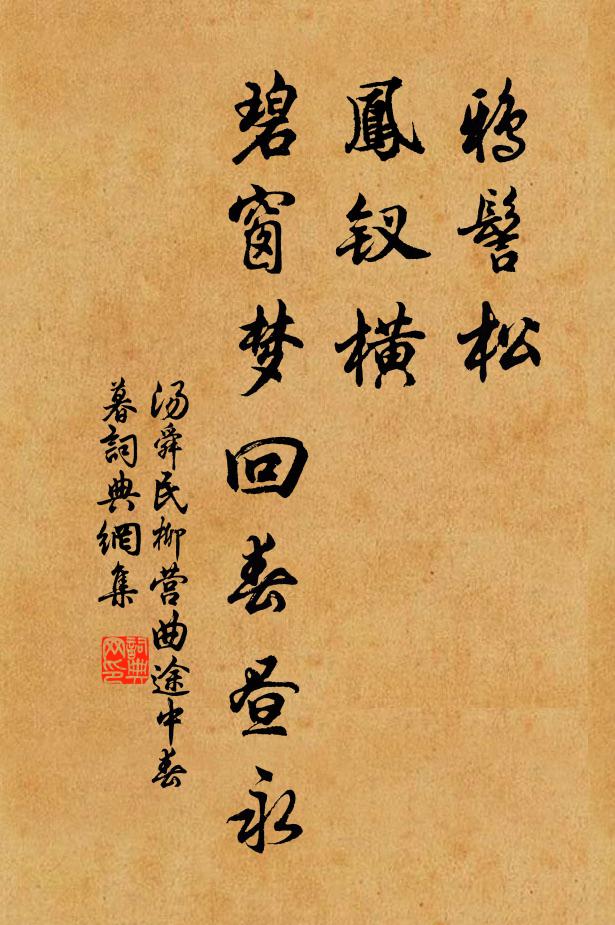 鸦髻松
鳳钗横
碧窗梦回春昼永
汤舜民柳营曲途中春
暮詞典網集
詞典网印